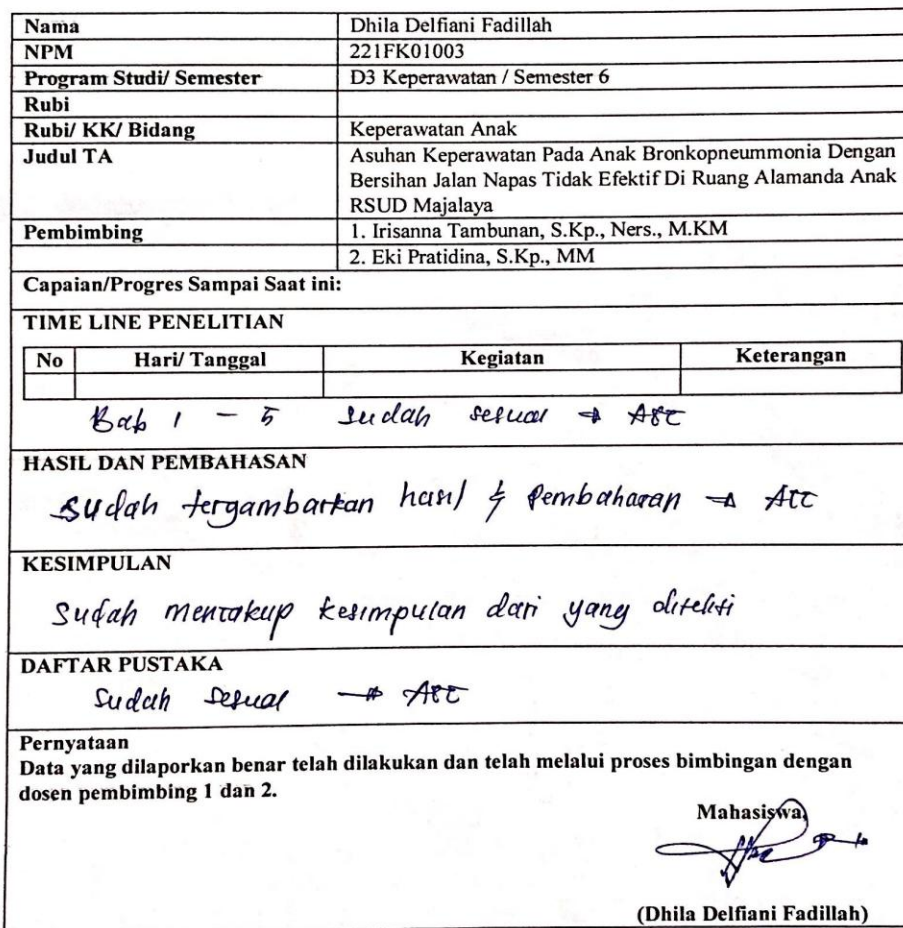 Nama Dhila Delfiani Fadillah
NPM 221FK01003
Program Studi/ Semester D3 Keperawatan / Semester 6
Rubi
Rubi/ KK/ Bidang Keperawatan Anak
Judul TA Asuhan Keperawatan Pada Anak Bronkopneummonia Dengan
Bersihan Jalan Napas Tidak Efektif Di Ruang Alamanda Anak
RSUD Majalaya
Pembimbing 1. Irisanna Tambunan, S.Kp., Ners., M.KM
2. Eki Pratidina, S.Kp., MM
Capaian/Progres Sampai Saat ini:
TIME LINE PENELITIAN
No Hari/ Tanggal Kegiatan Keterangan
Bab 1 - 5 sudah sesuai → Acc
HASIL DAN PEMBAHASAN
sudah tergambarkan hasil & pembahasan → Acc
KESIMPULAN
Sudah mencakup kesimpulan dari yang diteliti
DAFTAR PUSTAKA
Sudah sesuai → Acc
Pernyataan
Data yang dilaporkan benar telah dilakukan dan telah melalui proses bimbingan dengan
dosen pembimbing 1 dan 2.
Mahasiswa,
(Dhila Delfiani Fadillah)